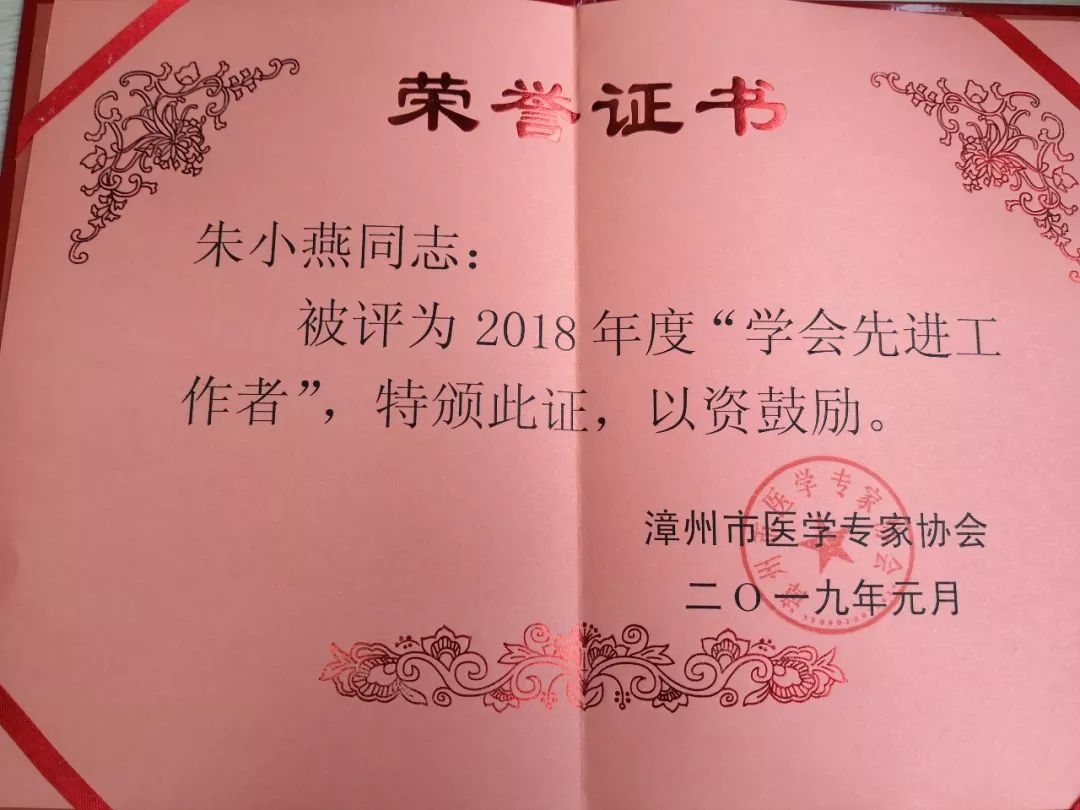 荣誉证书
朱小燕同志：
被评为 2018 年度“学会先进工
作者”，特颁此证，以资鼓励。
漳州市医学专家协会
二〇一九年元月
漳州市医学专家协会